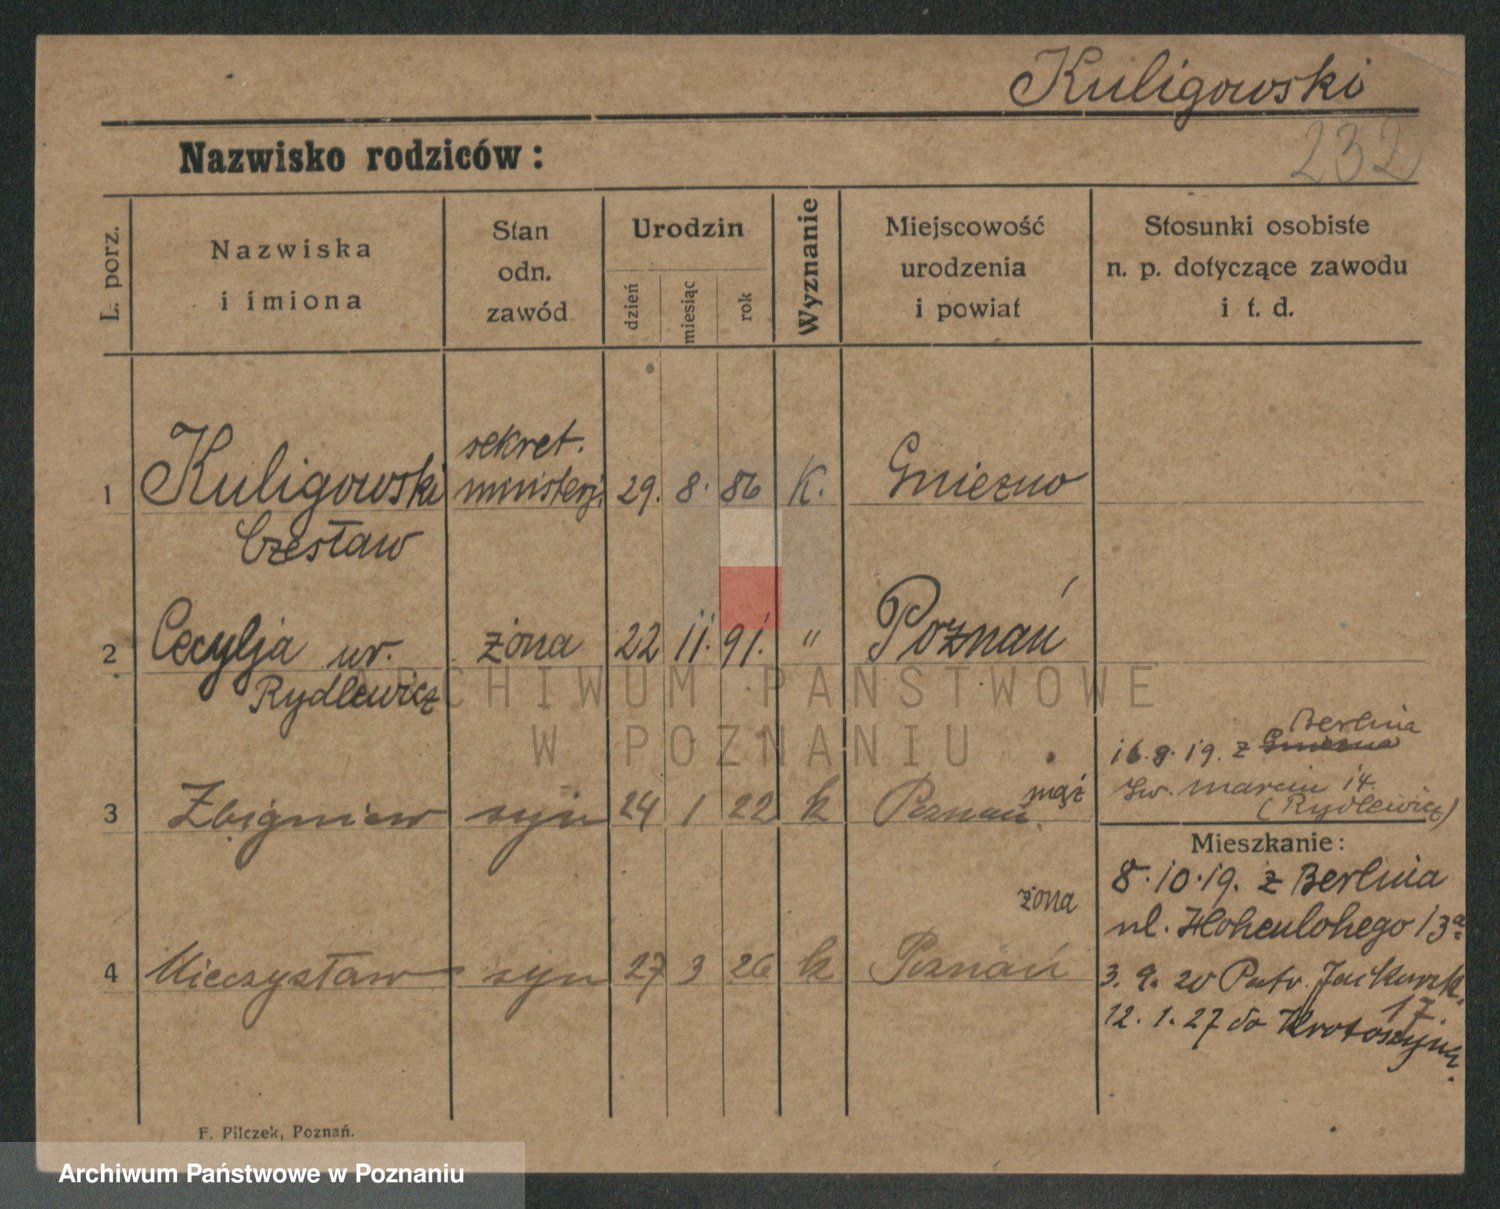 Kuligowski
Nazwisko rodziców:
232
L. porz.
Nazwiska
i imiona
Stan
odn.
zawód
Urodzin
dzień
miesiąc
rok
Wyznanie
Miejscowość
urodzenia
i powiat
Stosunki osobiste
n. p. dotyczące zawodu
i t. d.
sekret.
1 Kuligowski ministerj. 29. 8. 86 K. Gniezno
Czesław
2 Cecylja ur. żona 22 11. 91. " Poznań
Rydlewicz
ARCHIWUM PAŃSTWOWE
W POZNANIU
Berlina
16.9.19. z Gniezna
mąż św. Marcin 14.
(Rydlewicz)
3 Zbigniew syn 24 1 22 k Poznań
Mieszkanie:
żona 8.10.19. z Berlina
ul. Hohenlohego 13a
4 Mieczysław syn 27 3 26 k Poznań
3. 9. 20 Patr. Jackowsk.
17.
12. 1. 27 do Krotoszyna.
F. Pilczek, Poznań.
Archiwum Państwowe w Poznaniu